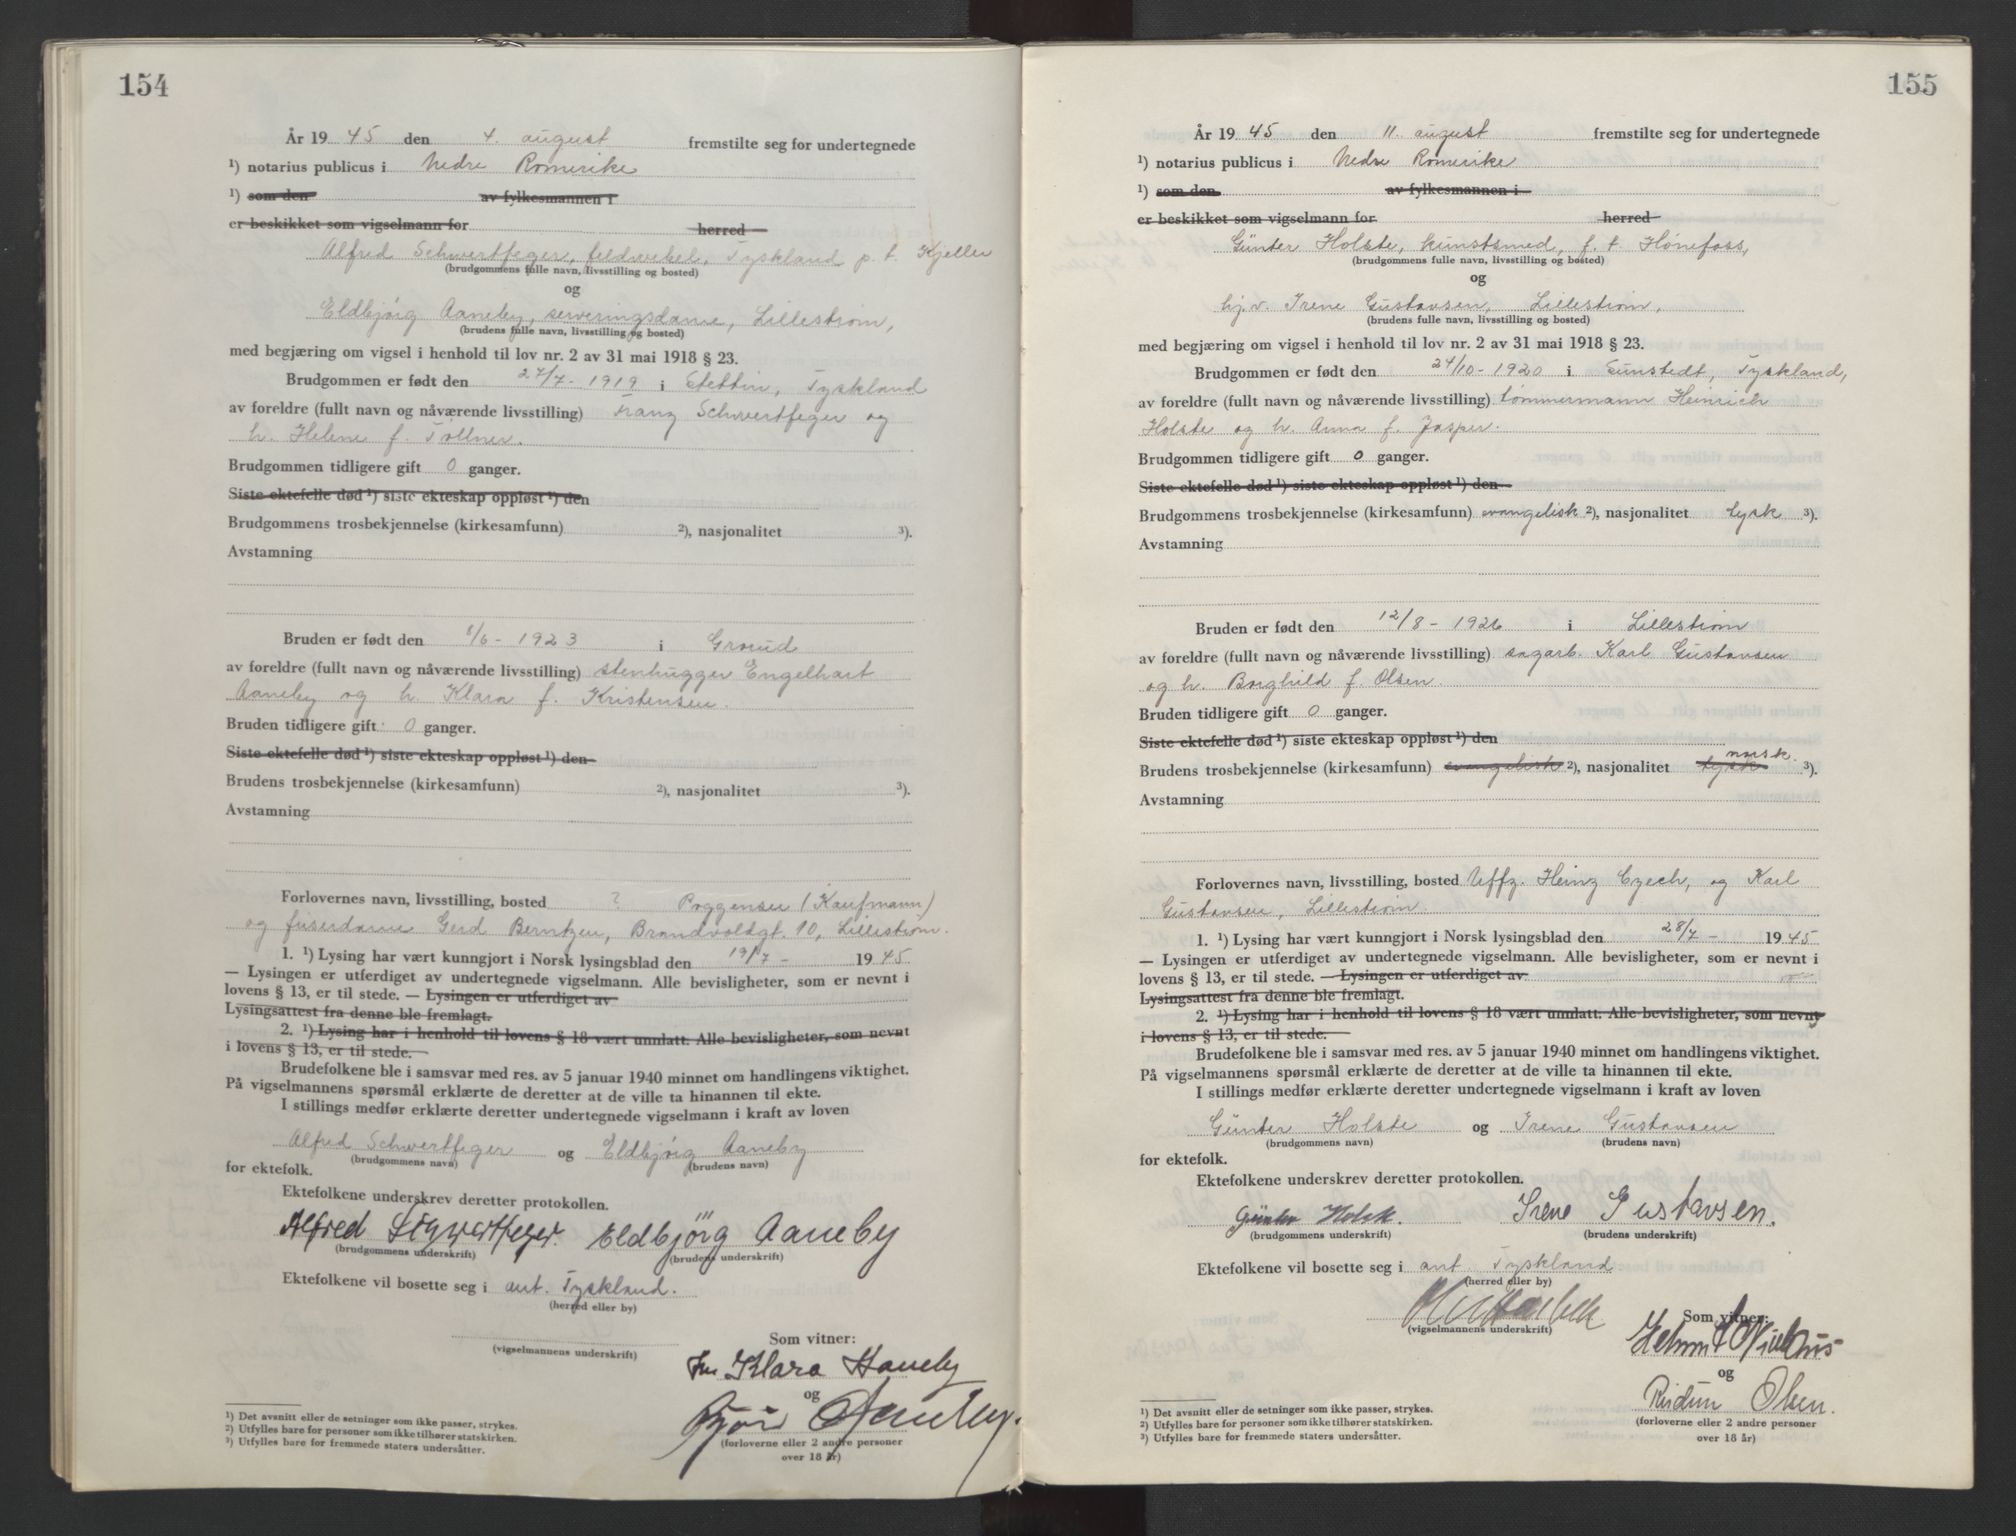 154
År 19 45 den 4. august fremstilte seg for undertegnede
¹) notarius publicus i Nedre Romerike
¹) som den av fylkesmannen i
er beskikket som vigselmann for herred
Alfred Schwertfeger, feldwebel, Tyskland p. t. Kjeller
(brudgommens fulle navn, livsstilling og bosted)
og
Eldbjörg Aaneby, serveringsdame, Lillestrøm,
(brudens fulle navn, livsstilling og bosted)
med begjæring om vigsel i henhold til lov nr. 2 av 31 mai 1918 § 23.
Brudgommen er født den 27/7 - 1919 i Stettin, Tyskland
av foreldre (fullt navn og nåværende livsstilling) Franz Schwertfeger og
h. Helene f. Töllner.
Brudgommen tidligere gift 0 ganger.
Siste ektefelle død ¹) siste ekteskap oppløst ¹) den
Brudgommens trosbekjennelse (kirkesamfunn) ²), nasjonalitet ³).
Avstamning
Bruden er født den 8/6 - 1923 i Grorud
av foreldre (fullt navn og nåværende livsstilling) stenhugger Engelhart
Aaneby og h. Klara f. Kristensen.
Bruden tidligere gift 0 ganger.
Siste ektefelle død ¹) siste ekteskap oppløst ¹) den
Brudens trosbekjennelse (kirkesamfunn) ²), nasjonalitet ³).
Avstamning
Forlovernes navn, livsstilling, bosted ? Poggensee (Kaufmann)
og friserdame Gerd Berntzen, Brandvoldgt. 10, Lillestrøm.
1. ¹) Lysing har vært kunngjort i Norsk lysingsblad den 19/7 - 19 45.
— Lysingen er utferdiget av undertegnede vigselmann. Alle bevisligheter, som er nevnt i
lovens § 13, er til stede. — Lysingen er utferdiget av
Lysingsattest fra denne ble fremlagt.
2. ¹) Lysing har i henhold til lovens § 18 vært unnlatt. Alle bevisligheter, som nevnt
i lovens § 13, er til stede.
Brudefolkene ble i samsvar med res. av 5 januar 1940 minnet om handlingens viktighet.
På vigselmannens spørsmål erklærte de deretter at de ville ta hinannen til ekte.
I stillings medfør erklærte deretter undertegnede vigselmann i kraft av loven
Alfred Schwertfeger og Eldbjörg Aaneby
(brudgommens navn) (brudens navn)
for ektefolk.
Ektefolkene underskrev deretter protokollen.
Alfred Schwertfeger. Eldbjörg Aaneby
(brudgommens underskrift) (brudens underskrift)
Ektefolkene vil bosette seg i ant. Tyskland.
(herred eller by)
Som vitner:
(vigselmannens underskrift)
Fru Klara Aaneby
og
(forloverne eller 2 andre personer
over 18 år)
¹) Det avsnitt eller de setninger som ikke passer, strykes.
²) Utfylles bare for personer som ikke tilhører statskirken.
³) Utfylles bare for fremmede staters undersåtter.
155
År 19 45 den 11. august fremstilte seg for undertegnede
¹) notarius publicus i Nedre Romerike
¹) som den av fylkesmannen i
er beskikket som vigselmann for herred
Günter Holste, kunstsmed, f. t. Hønefoss,
(brudgommens fulle navn, livsstilling og bosted)
og
hj.v. Irene Gustavsen, Lillestrøm,
(brudens fulle navn, livsstilling og bosted)
med begjæring om vigsel i henhold til lov nr. 2 av 31 mai 1918 § 23.
Brudgommen er født den 24/10 - 1920 i Sunstedt, Tyskland,
av foreldre (fullt navn og nåværende livsstilling) tømmermann Heinrich
Holste og h. Anna f. Jasper.
Brudgommen tidligere gift 0 ganger.
Siste ektefelle død ¹) siste ekteskap oppløst ¹) den
Brudgommens trosbekjennelse (kirkesamfunn) evangelisk ²), nasjonalitet tysk ³).
Avstamning
Bruden er født den 12/8 - 1926 i Lillestrøm
av foreldre (fullt navn og nåværende livsstilling) sagarb. Karl Gustavsen
og h. Borghild f. Olsen.
Bruden tidligere gift 0 ganger.
Siste ektefelle død ¹) siste ekteskap oppløst ¹) den
norsk.
Brudens trosbekjennelse (kirkesamfunn) evangelisk ²), nasjonalitet tysk ³).
Avstamning
Forlovernes navn, livsstilling, bosted Uffz. Heinz Czech, og Karl
Gustavsen, Lillestrøm.
1. ¹) Lysing har vært kunngjort i Norsk lysingsblad den 28/7 - 19 45
— Lysingen er utferdiget av undertegnede vigselmann. Alle bevisligheter, som er nevnt i
lovens § 13, er til stede. — Lysingen er utferdiget av
Lysingsattest fra denne ble fremlagt.
2. ¹) Lysing har i henhold til lovens § 18 vært unnlatt. Alle bevisligheter, som nevnt
i lovens § 13, er til stede.
Brudefolkene ble i samsvar med res. av 5 januar 1940 minnet om handlingens viktighet.
På vigselmannens spørsmål erklærte de deretter at de ville ta hinannen til ekte.
I stillings medfør erklærte deretter undertegnede vigselmann i kraft av loven
Günter Holste og Irene Gustavsen
(brudgommens navn) (brudens navn)
for ektefolk.
Ektefolkene underskrev deretter protokollen.
Günter Holste. Irene Gustavsen.
(brudgommens underskrift) (brudens underskrift)
Ektefolkene vil bosette seg i ant. Tyskland
(herred eller by)
Som vitner:
(vigselmannens underskrift)
Helmut
og
Reidun Olsen.
(forloverne eller 2 andre personer
over 18 år)
¹) Det avsnitt eller de setninger som ikke passer, strykes.
²) Utfylles bare for personer som ikke tilhører statskirken.
³) Utfylles bare for fremmede staters undersåtter.